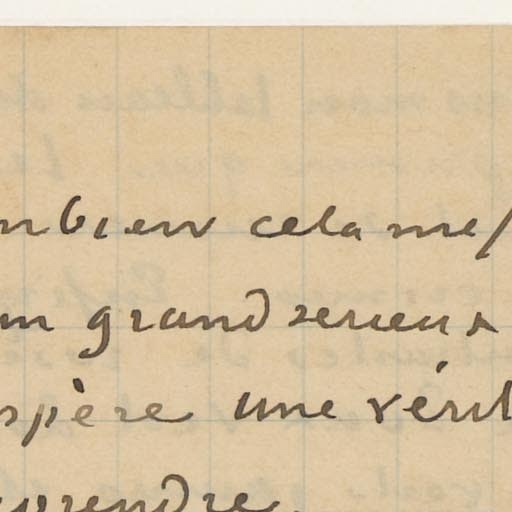 mbien cela me
un grand serieux
spère une vérit
prendre.